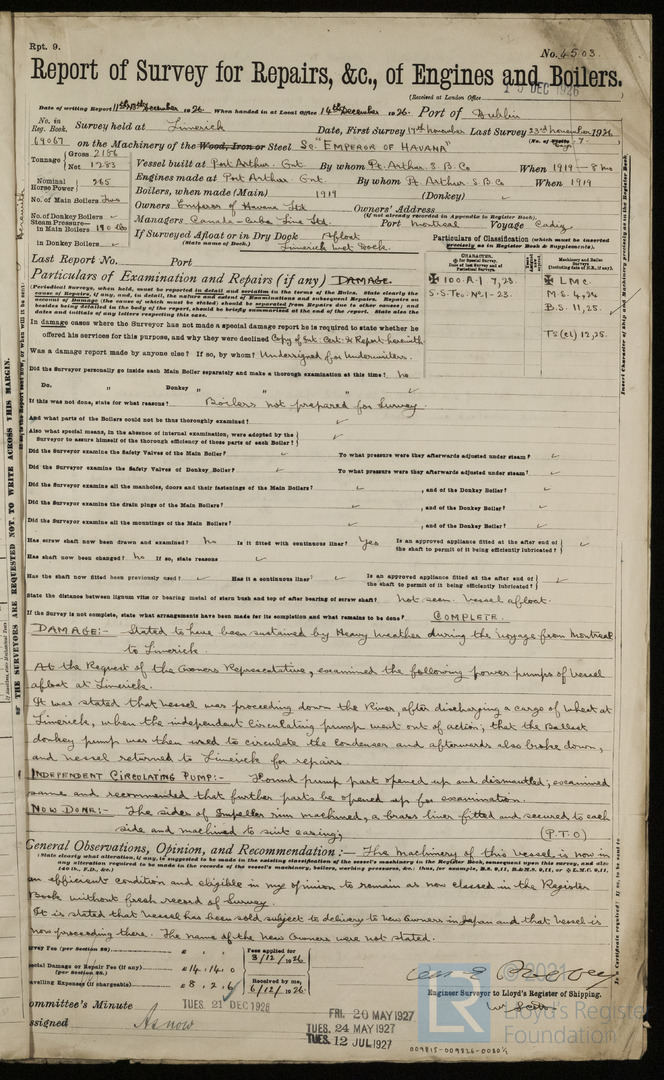 Rpt. 9.
No. 4503.
Report of Survey for Repairs, &c., of Engines and Boilers.
(Received at London Office
15 DEC 1926
Date of writing Report 11th December 1926. When handed in at Local Office 14th December 1926. Port of Dublin
No. in Reg. Book. Survey held at Limerick Date, First Survey 17th November Last Survey 23rd November 1926
69067 on the Machinery of the Wood, Iron or Steel Sc. "EMPEROR OF HAVANA" (No. of Visits 7.
Tonnage Gross 2186 Net 1283
Vessel built at Port Arthur. Ont By whom Pt. Arthur. S.B.Co When 1919 - 8 mo
Engines made at Port Arthur Ont. By whom Pt. Arthur S.B.Co When 1919
Nominal Horse Power 265
Boilers, when made (Main) 1919 (Donkey) ✓
No. of Main Boilers Two
Owners Emperor of Havana Ltd Owners' Address
(if not already recorded in Appendix to Register Book.)
No. of Donkey Boilers ✓
Managers Canada-Cuba Line Ltd. Port Montreal Voyage Cadiz
Steam Pressure in Main Boilers 180 lbs
If Surveyed Afloat or in Dry Dock Afloat
(State name of Dock.) Limerick Wet Dock.
in Donkey Boilers ✓
Particulars of Classification (which must be inserted precisely as in Register Book & Supplements).
Last Report No. Port
CHARACTER.
Machinery and Boiler Surveys (including date of N.B., if any).
✠ 100.A.1 7,23.
S.S.Tro. No.1-23.
✠ L M C.
M S. 4,26
B.S. 11,25.
TS(cl) 12,25.
Particulars of Examination and Repairs (if any) DAMAGE.
(Periodical Surveys, when held, must be reported in detail and seriatim in the terms of the Rules. State clearly the
cause of Repairs, if any, and, in detail, the nature and extent of Examinations and subsequent Repairs. Repairs on
account of Damage (the cause of which must be stated) should be separated from Repairs due to other causes; and
besides being detailed in the body of the report, should be briefly summarised at the end of the report. State also the
dates and initials of any letters respecting this case.
In damage cases where the Surveyor has not made a special damage report he is required to state whether he
offered his services for this purpose, and why they were declined Copy of Int. Cert. & Report herewith
Was a damage report made by anyone else? If so, by whom? Undersigned for Underwriters.
Did the Surveyor personally go inside each Main Boiler separately and make a thorough examination at this time? No
Do. " Donkey " " " ✓
If this was not done, state for what reasons? Boilers not prepared for Survey.
And what parts of the Boilers could not be thus thoroughly examined? ✓
Also what special means, in the absence of internal examination, were adopted by the
Surveyor to assure himself of the thorough efficiency of those parts of each Boiler? ✓
Did the Surveyor examine the Safety Valves of the Main Boiler? ✓ To what pressure were they afterwards adjusted under steam? ✓
Did the Surveyor examine the Safety Valves of Donkey Boiler? ✓ To what pressure were they afterwards adjusted under steam? ✓
Did the Surveyor examine all the manholes, doors and their fastenings of the Main Boilers? ✓ , and of the Donkey Boiler? ✓
Did the Surveyor examine the drain plugs of the Main Boilers? ✓ , and of the Donkey Boiler? ✓
Did the Surveyor examine all the mountings of the Main Boilers? ✓ , and of the Donkey Boiler? ✓
Has screw shaft now been drawn and examined? No Is it fitted with continuous liner? Yes Is an approved appliance fitted at the after end of the shaft to permit of it being efficiently lubricated? ✓
Has shaft now been changed? No If so, state reasons ✓
Has the shaft now fitted been previously used? ✓ Has it a continuous liner? ✓ Is an approved appliance fitted at the after end of the shaft to permit of it being efficiently lubricated? ✓
State the distance between lignum vitæ or bearing metal of stern bush and top of after bearing of screw shaft. Not seen. Vessel afloat.
If the Survey is not complete, state what arrangements have been made for its completion and what remains to be done? COMPLETE.
DAMAGE:- Stated to have been sustained by Heavy Weather during the voyage from Montreal
to Limerick.
At the Request of the Owners Representative, examined the following power pumps of vessel
afloat at Limerick.
It was stated that vessel was proceeding down the River, after discharging a cargo of wheat at
Limerick, when the independent Circulating pump went out of action; that the Ballast
donkey pump was then used to circulate the condenser and afterwards also broke down,
and vessel returned to Limerick for repairs.
INDEPENDENT CIRCULATING PUMP:- Found pump part opened up and dismantled; examined
same and recommended that further parts be opened up for examination.
NOW DONE:- The sides of Impeller rim machined, a brass liner fitted and secured to each
side and machined to suit casing; (P.T.O)
General Observations, Opinion, and Recommendation:— The Machinery of this Vessel is now in
(State clearly what alteration, if any, is suggested to be made in the existing classification of the vessel's machinery in the Register Book, consequent upon this survey, and also
any alteration required to be made in the records of the vessel's machinery, boilers, working pressures, &c.; thus, for example, B.S. 9,11, B.&M.S. 9,11, or ✠ L.M.C. 9,11,
140 lb., F.D., &c.)
an efficient condition and eligible in my opinion to remain as now classed in the Register
Book without fresh record of Survey.
It is stated that vessel has been sold subject to delivery to New Owners in Japan and that vessel is
now proceeding there. The name of the New Owners were not stated.
Survey Fee (per Section 28) £ : : Fees applied for 3/12/1926
Special Damage or Repair Fee (if any) (per Section 28.) £ 14.14.0
Travelling Expenses (if chargeable) £ 8. 2. 6 Received by me, 6/12/1926.
Engineer Surveyor to Lloyd's Register of Shipping.
Committee's Minute TUES. 21 DEC 1926
Assigned As now
FRI. 20 MAY 1927
TUES. 24 MAY 1927
TUES. 12 JUL 1927
© 2021
LR
Lloyd's Register
Foundation
OF THE SURVEYORS ARE REQUESTED NOT TO WRITE ACROSS THIS MARGIN.